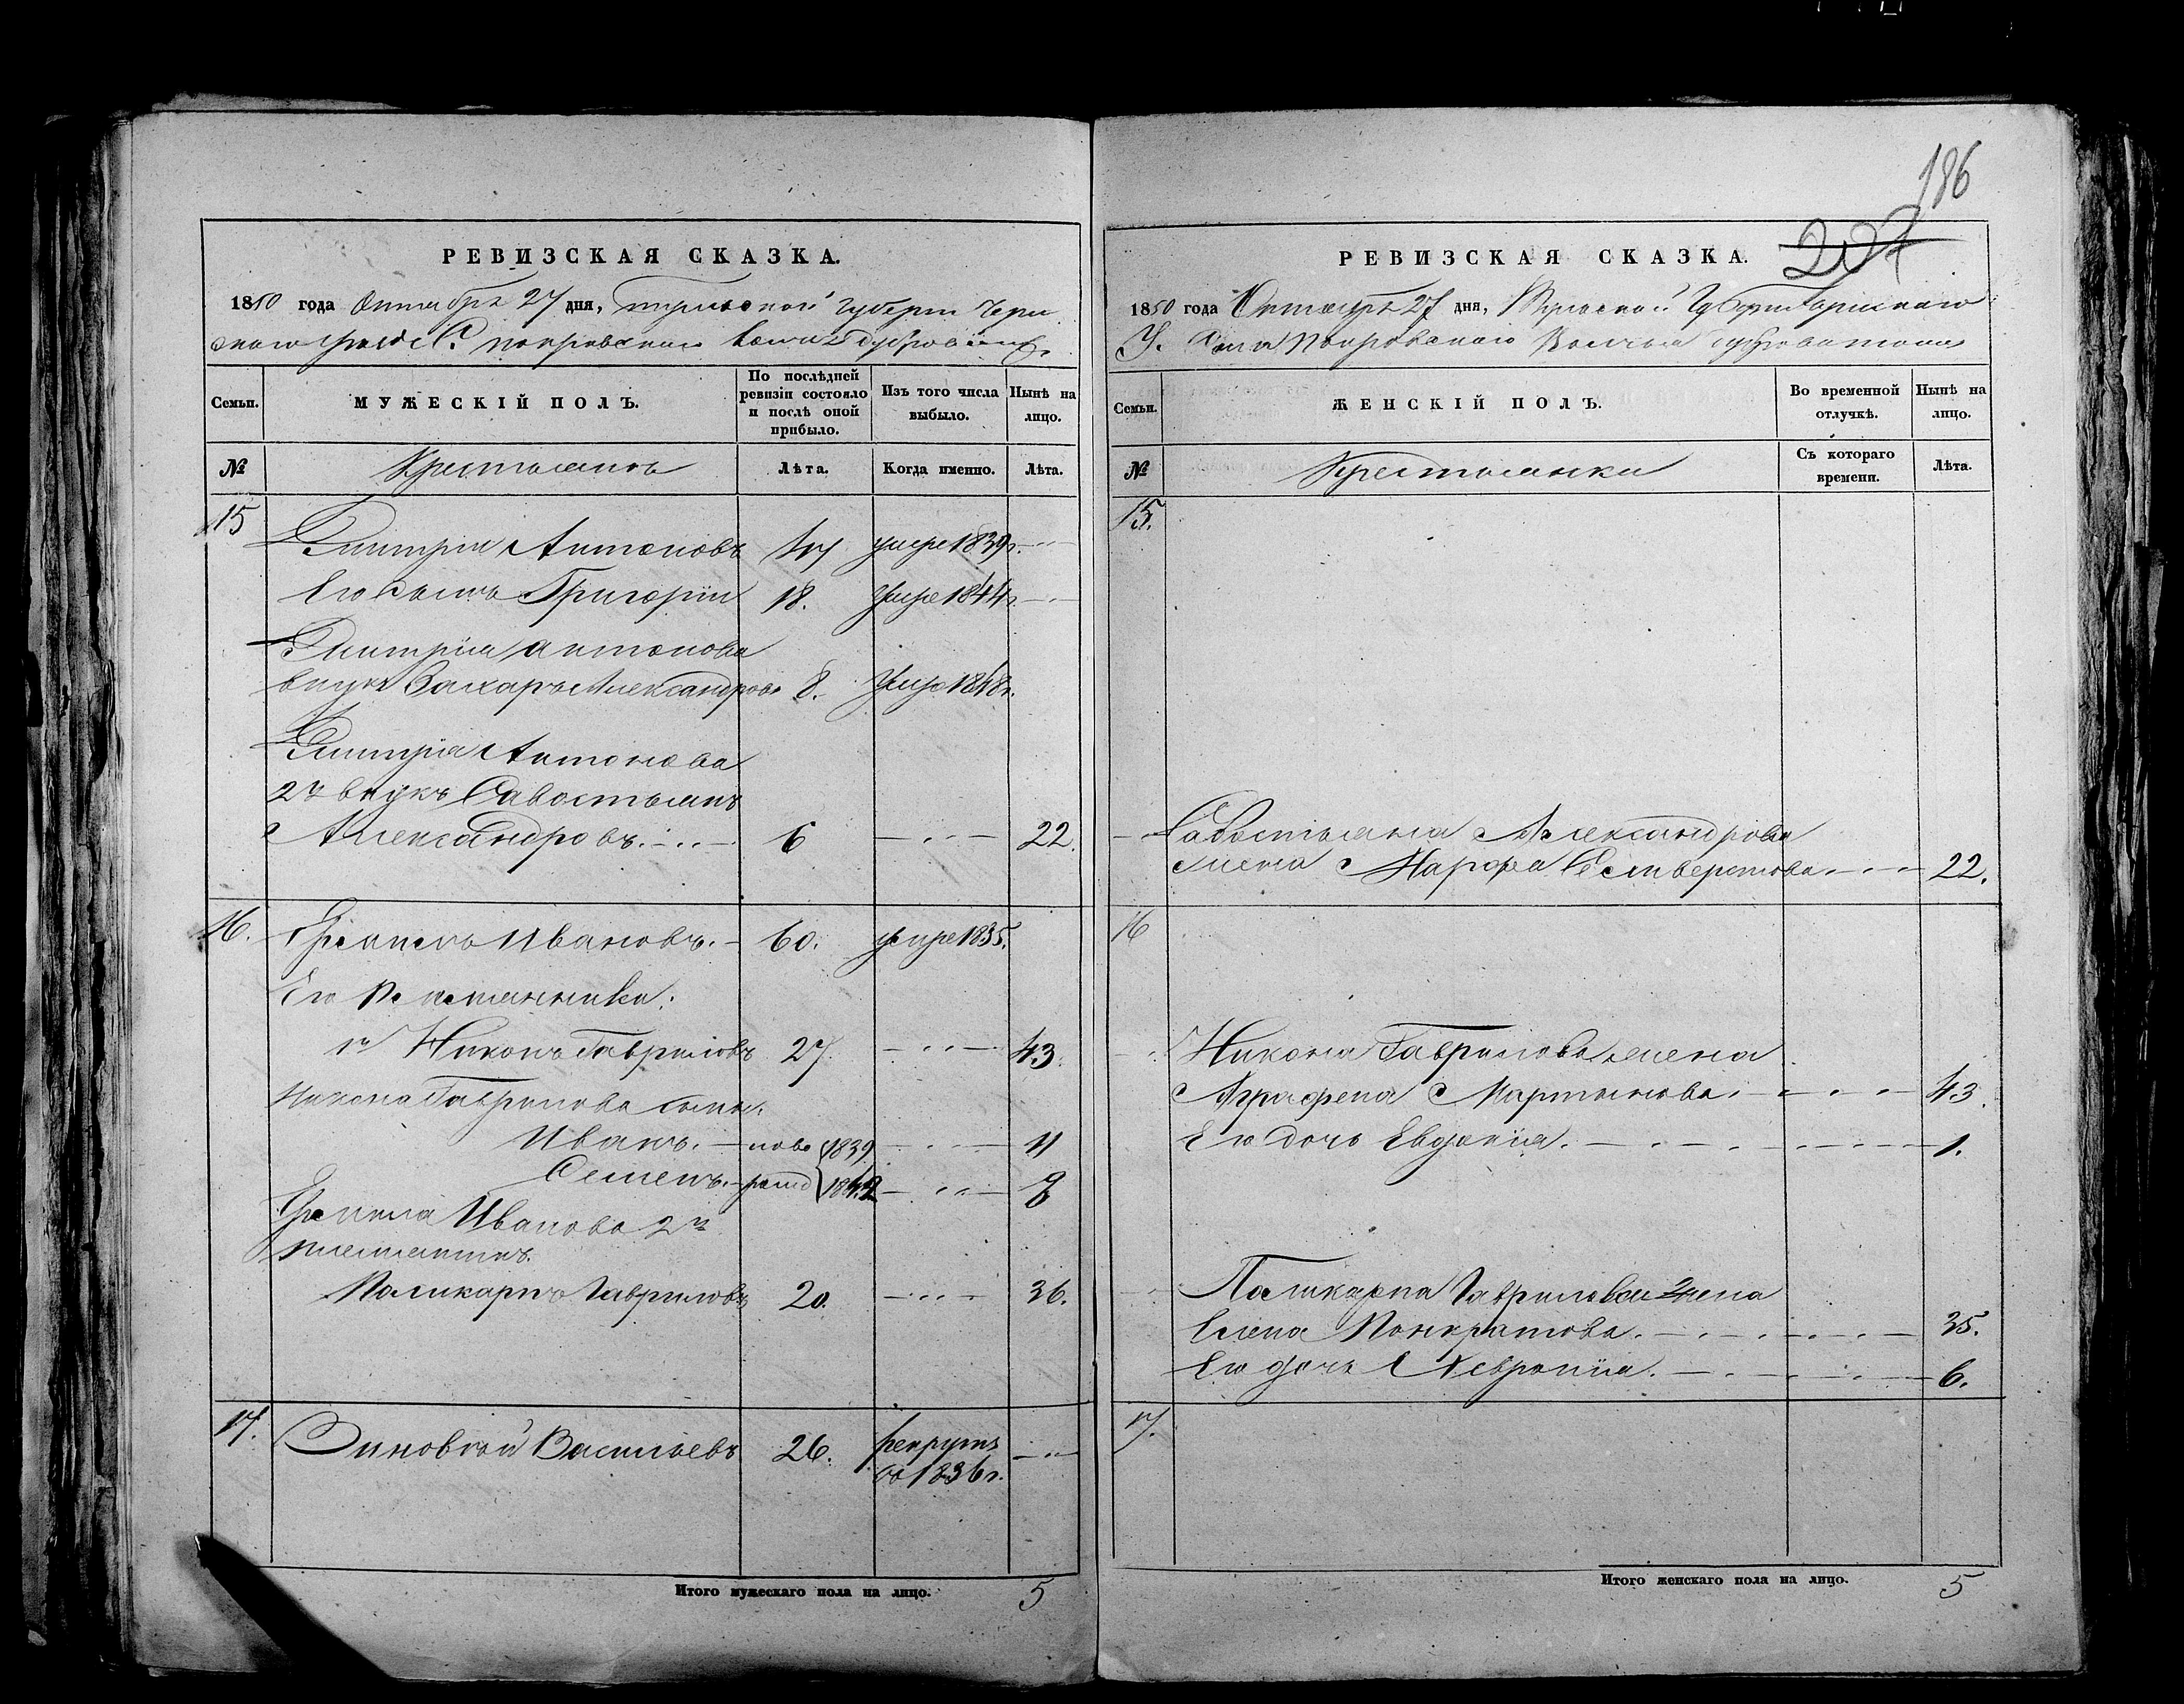 186
207
РЕВИЗСКАЯ СКАЗКА.
1850 года Октября 27 дня, Тульской Губерни Черн
скаго уезда С. Покровскаго
Семьи.
МУЖЕСКІЙ ПОЛЪ.
По послѣдней ревизіи состояло и послѣ оной прибыло.
Изъ того числа выбыло.
Нынѣ на лицо.
№
Крестьянъ
Лѣта.
Когда именно.
Лѣта.
15
Дмитрій Антоновъ умре 1839г.
Его сынъ Григорій 18. умре 1844г.
Дмитрія Антонова
внукъ Захаръ Александровъ 8. умре 1848г.
Дмитрія Антонова
2й внукъ Савостьянъ
Александровъ 6 22.
16. Ивановъ. 60. умре 1835.
Его племянники:
1й Никонъ Гавриловъ 27. 43.
Никона Гаврилова сыны.
Иванъ. ново 1839 11
Семенъ. рожд 1842 8
Иванова 2й
племянникъ.
Поликарпъ Гавриловъ 20. 36.
17. Зиновѣй Васильевъ 26. рекрутъ
въ 1836г.
Итого мужескаго пола на лицо. 5
РЕВИЗСКАЯ СКАЗКА.
1850 года Октября 27 дня, Тульской Губерни Чернскаго
У. Села Покровскаго
Семьи.
ЖЕНСКІЙ ПОЛЪ.
Во временной отлучкѣ.
Нынѣ на лицо.
№
Крестьянки
Съ котораго времени.
Лѣта.
15.
Савостьяна Александрова
жена Марфа Селиверстова 22.
16
Никона Гаврилова жена
Аграфена Мартынова 43.
Его дочь Евдокія. 1.
Поликарпа Гаврилова жена
Елена Понкратова. 35.
Его дочь Февронія. 6.
17.
Итого женскаго пола на лицо. 5